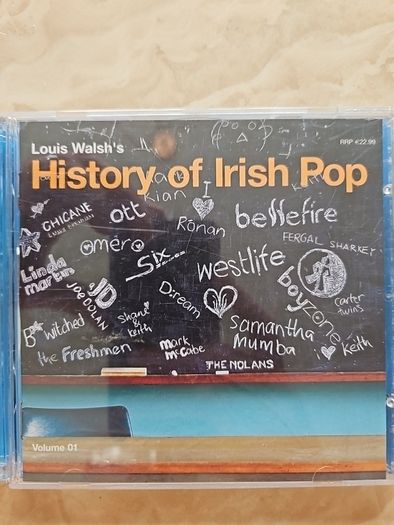 Louis Walsh's
RRP €22.99
History of Irish Pop
Kian
I
CHICANE
ott
Ronan
bellefire
FERGAL SHARKEY
omero
Six
westlife
Linda
martin
JOE DOLAN
JD
D:ream
boyzone
carter
twins
B*witched
Shane &
Keith
Samantha
Mumba
the Freshmen
mark
McCabe
i
Keith
THE NOLANS
Volume 01